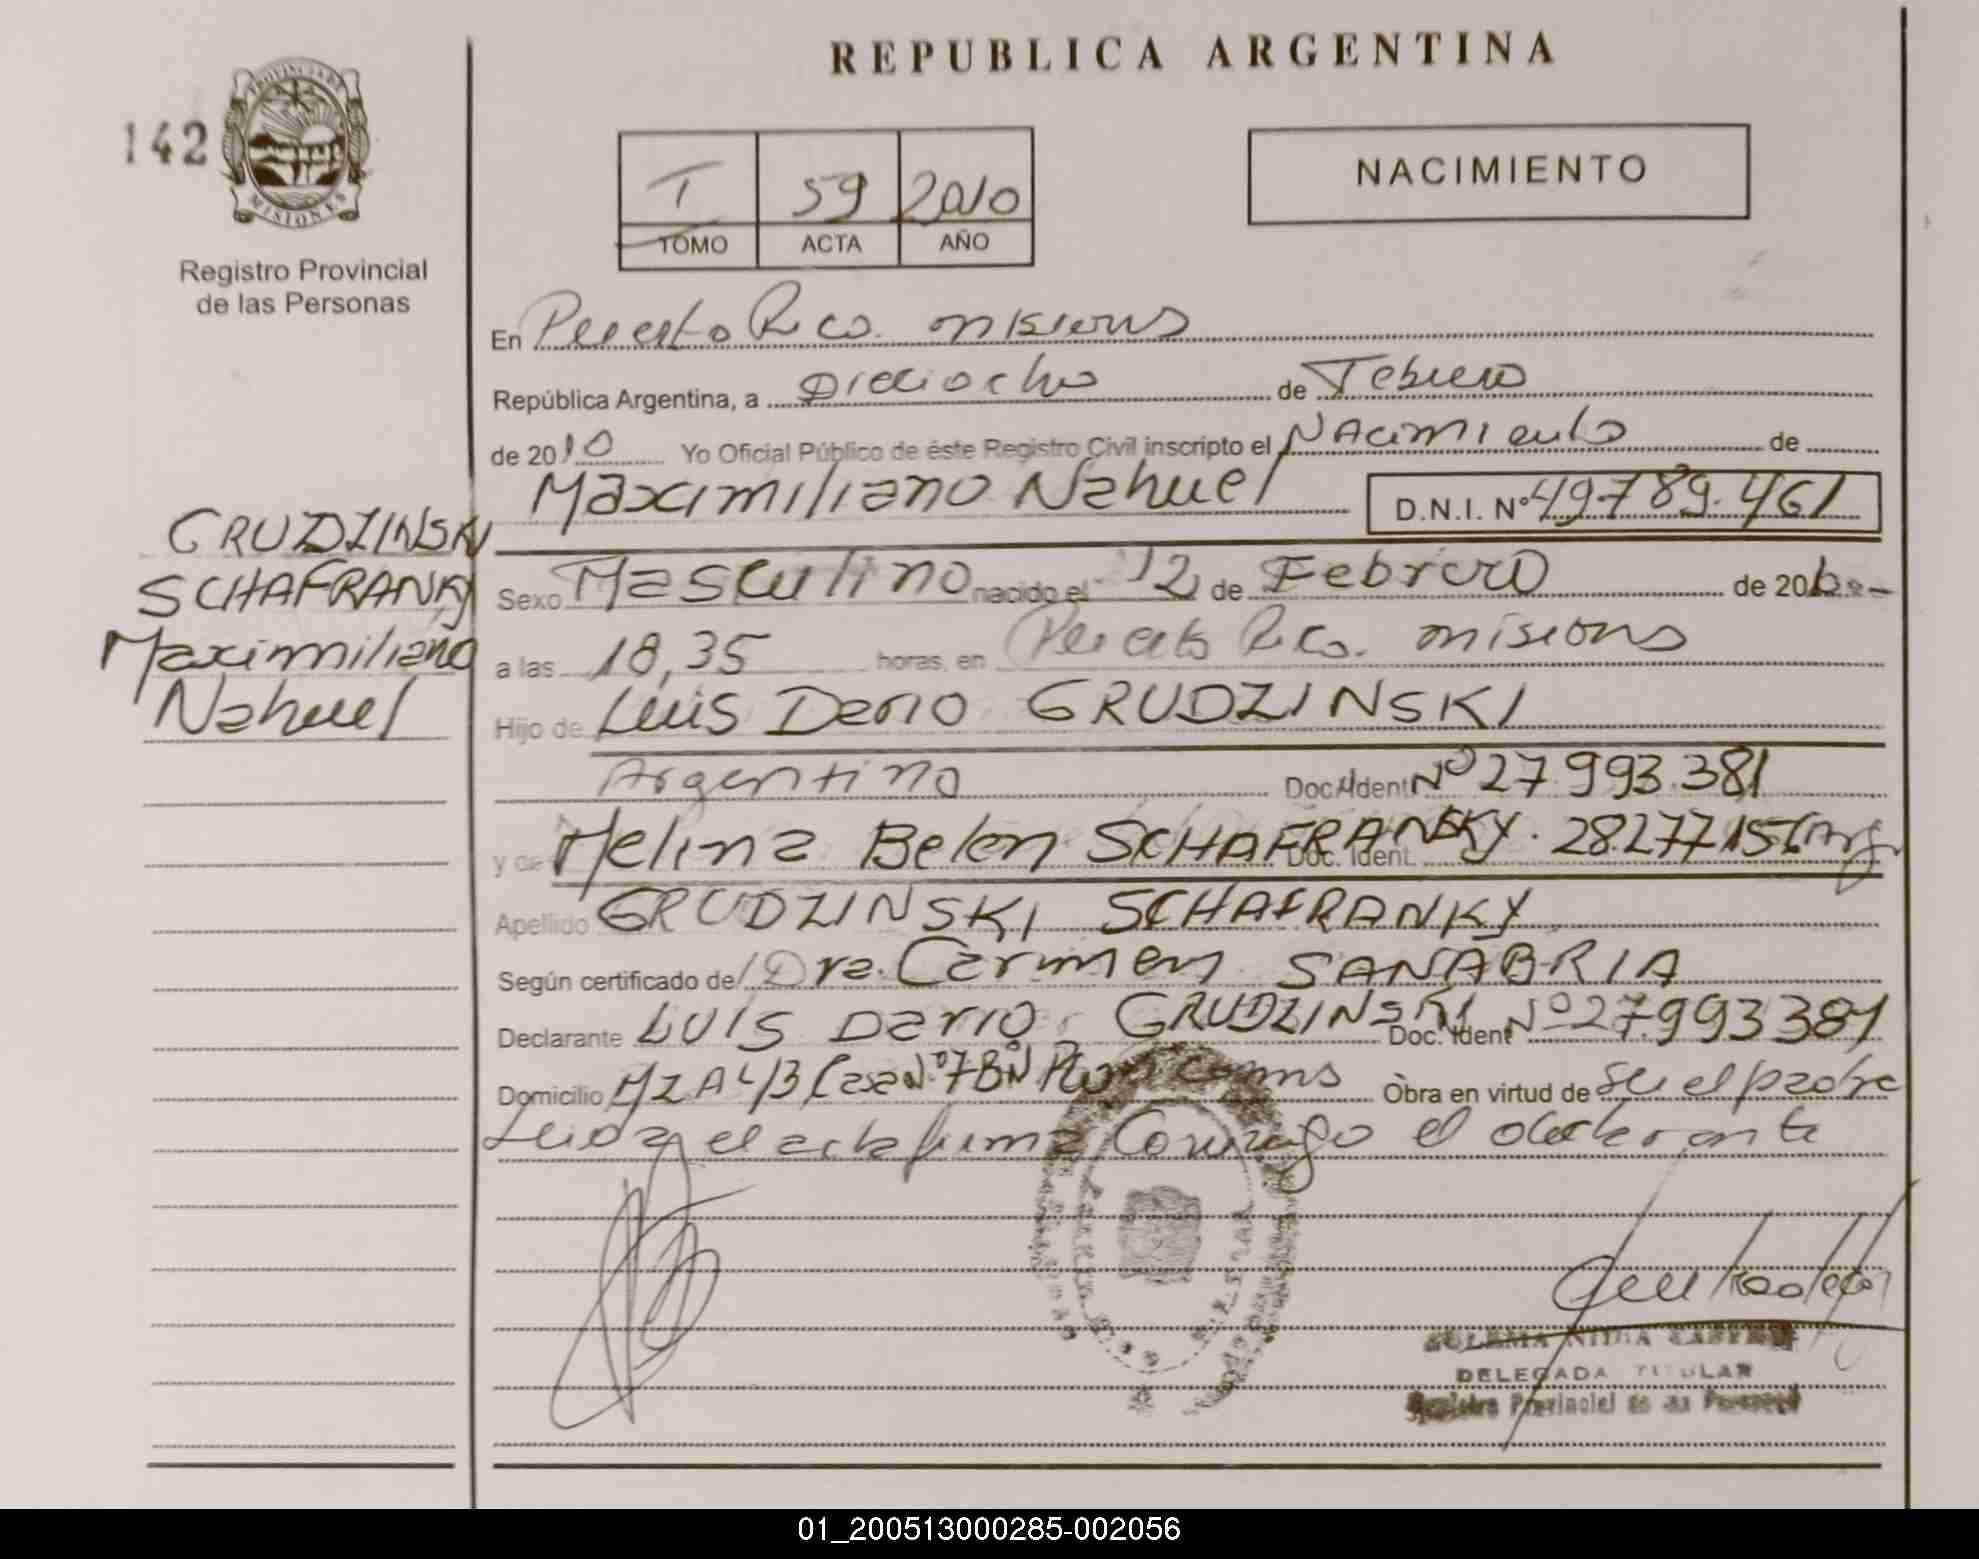 REPUBLICA ARGENTINA
142
PROVINCIA DE
MISIONES
Registro Provincial
de las Personas
T 59 2010
TOMO ACTA AÑO
NACIMIENTO
En Puerto Rico. misiones
República Argentina, a Dieciocho de Febrero
de 2010 Yo Oficial Público de éste Registro Civil inscripto el Nacimiento de
Maximiliano Nahuel D.N.I. Nº 49.789.461
GRUDZINSKI
SCHAFRANKY
Maximiliano
Nahuel
Sexo Masculino nacido el 12 de Febrero de 2010
a las 18,35 horas, en Puerto Rico. misiones
Hijo de Luis Dario GRUDZINSKI
Argentino Doc. Ident Nº 27.993.381
y de Melina Belen SCHAFRANSKY. Doc. Ident. 28.277.156 Arg
Apellido GRUDZINSKI SCHAFRANKY
Según certificado de Dra. Carmen SANABRIA
Declarante LUIS Dario GRUDZINSKI Doc. Ident Nº 27.993381
Domicilio MZA Casa Nº 7 Obra en virtud de ser el padre
Leida el acta firma Conmigo el declarante
DELEGADA TITULAR
Registro Provincial de las Personas
01_200513000285-002056